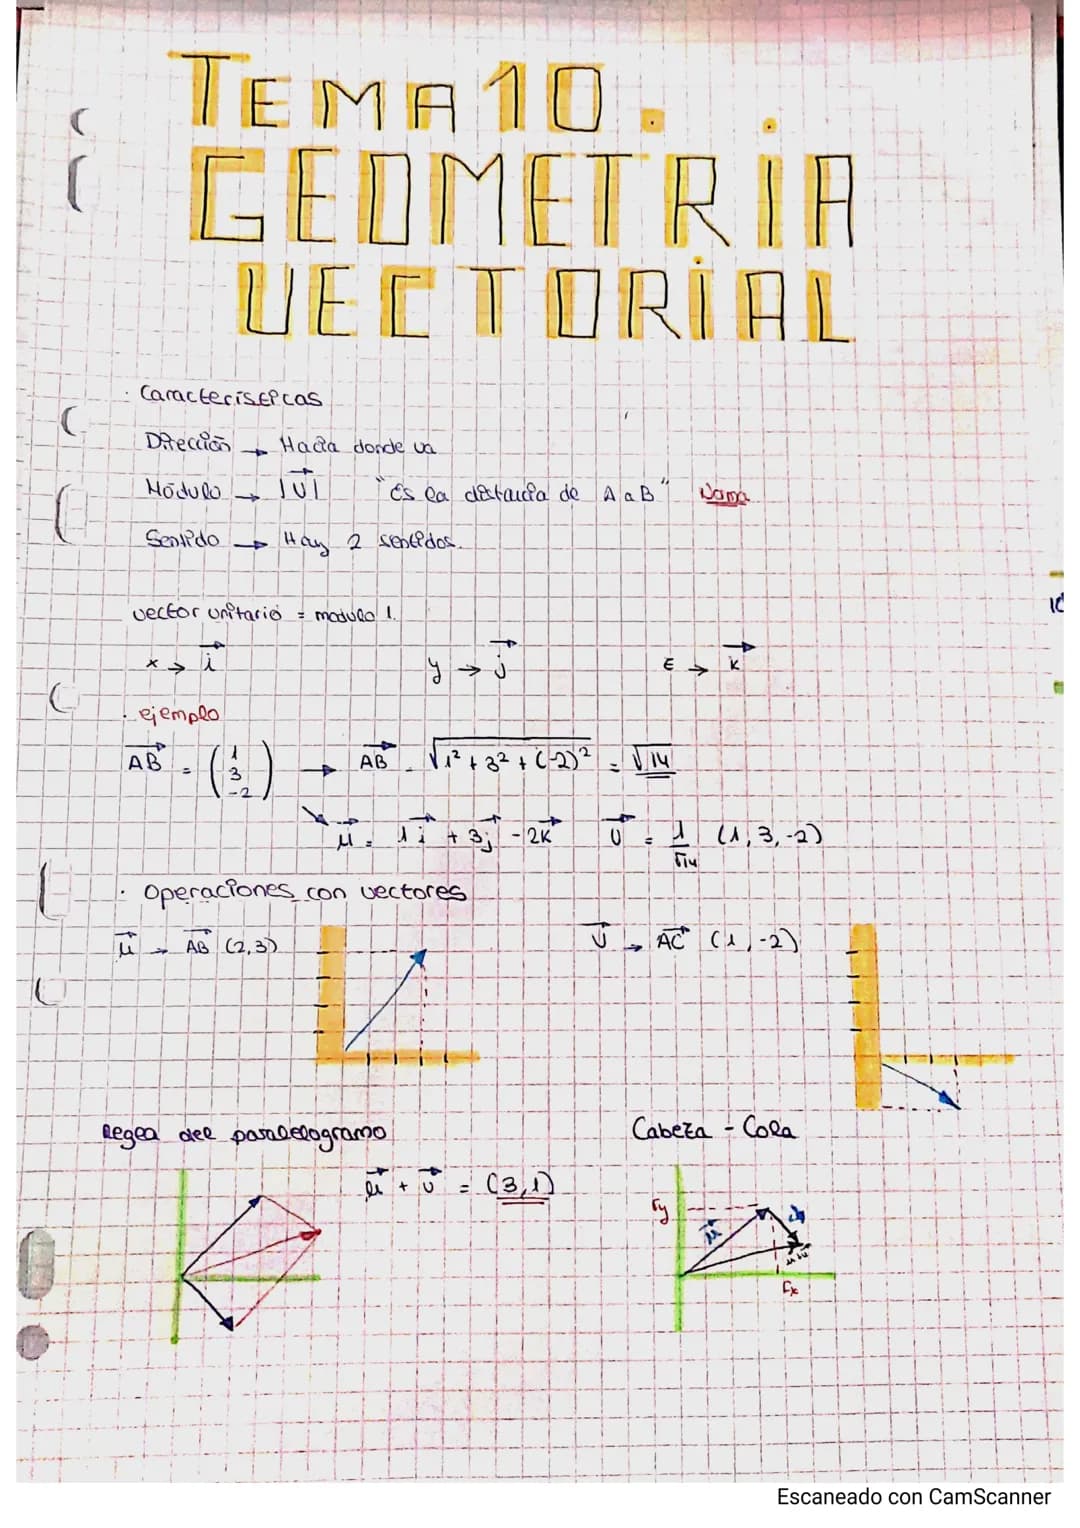 TEMA 10.
GEOMETRIA
VECTORIAL
· Características
Dirección → Hacia donde va
Módulo → |v⃗| "Es la distancia de A a B"
Sentido → Hay 2 sentidos.
vector unitario = modulo 1.
x → i⃗ y → j⃗ z → k⃗
· ejemplo
AB⃗ = (1 3 -2) → AB⃗ √1² + 3² + (-2)² = √14
μ⃗ = 1i⃗ + 3j⃗ - 2k⃗ U⃗ = 1/√14 (1, 3, -2)
· Operaciones con vectores
μ⃗ → AB⃗ (2,3) U⃗ → AC⃗ (1, -2)
Regla del paralelogramo Cabeza - Cola
μ⃗ + U⃗ = (3,1)
ry μ⃗
rx
Escaneado con CamScanner